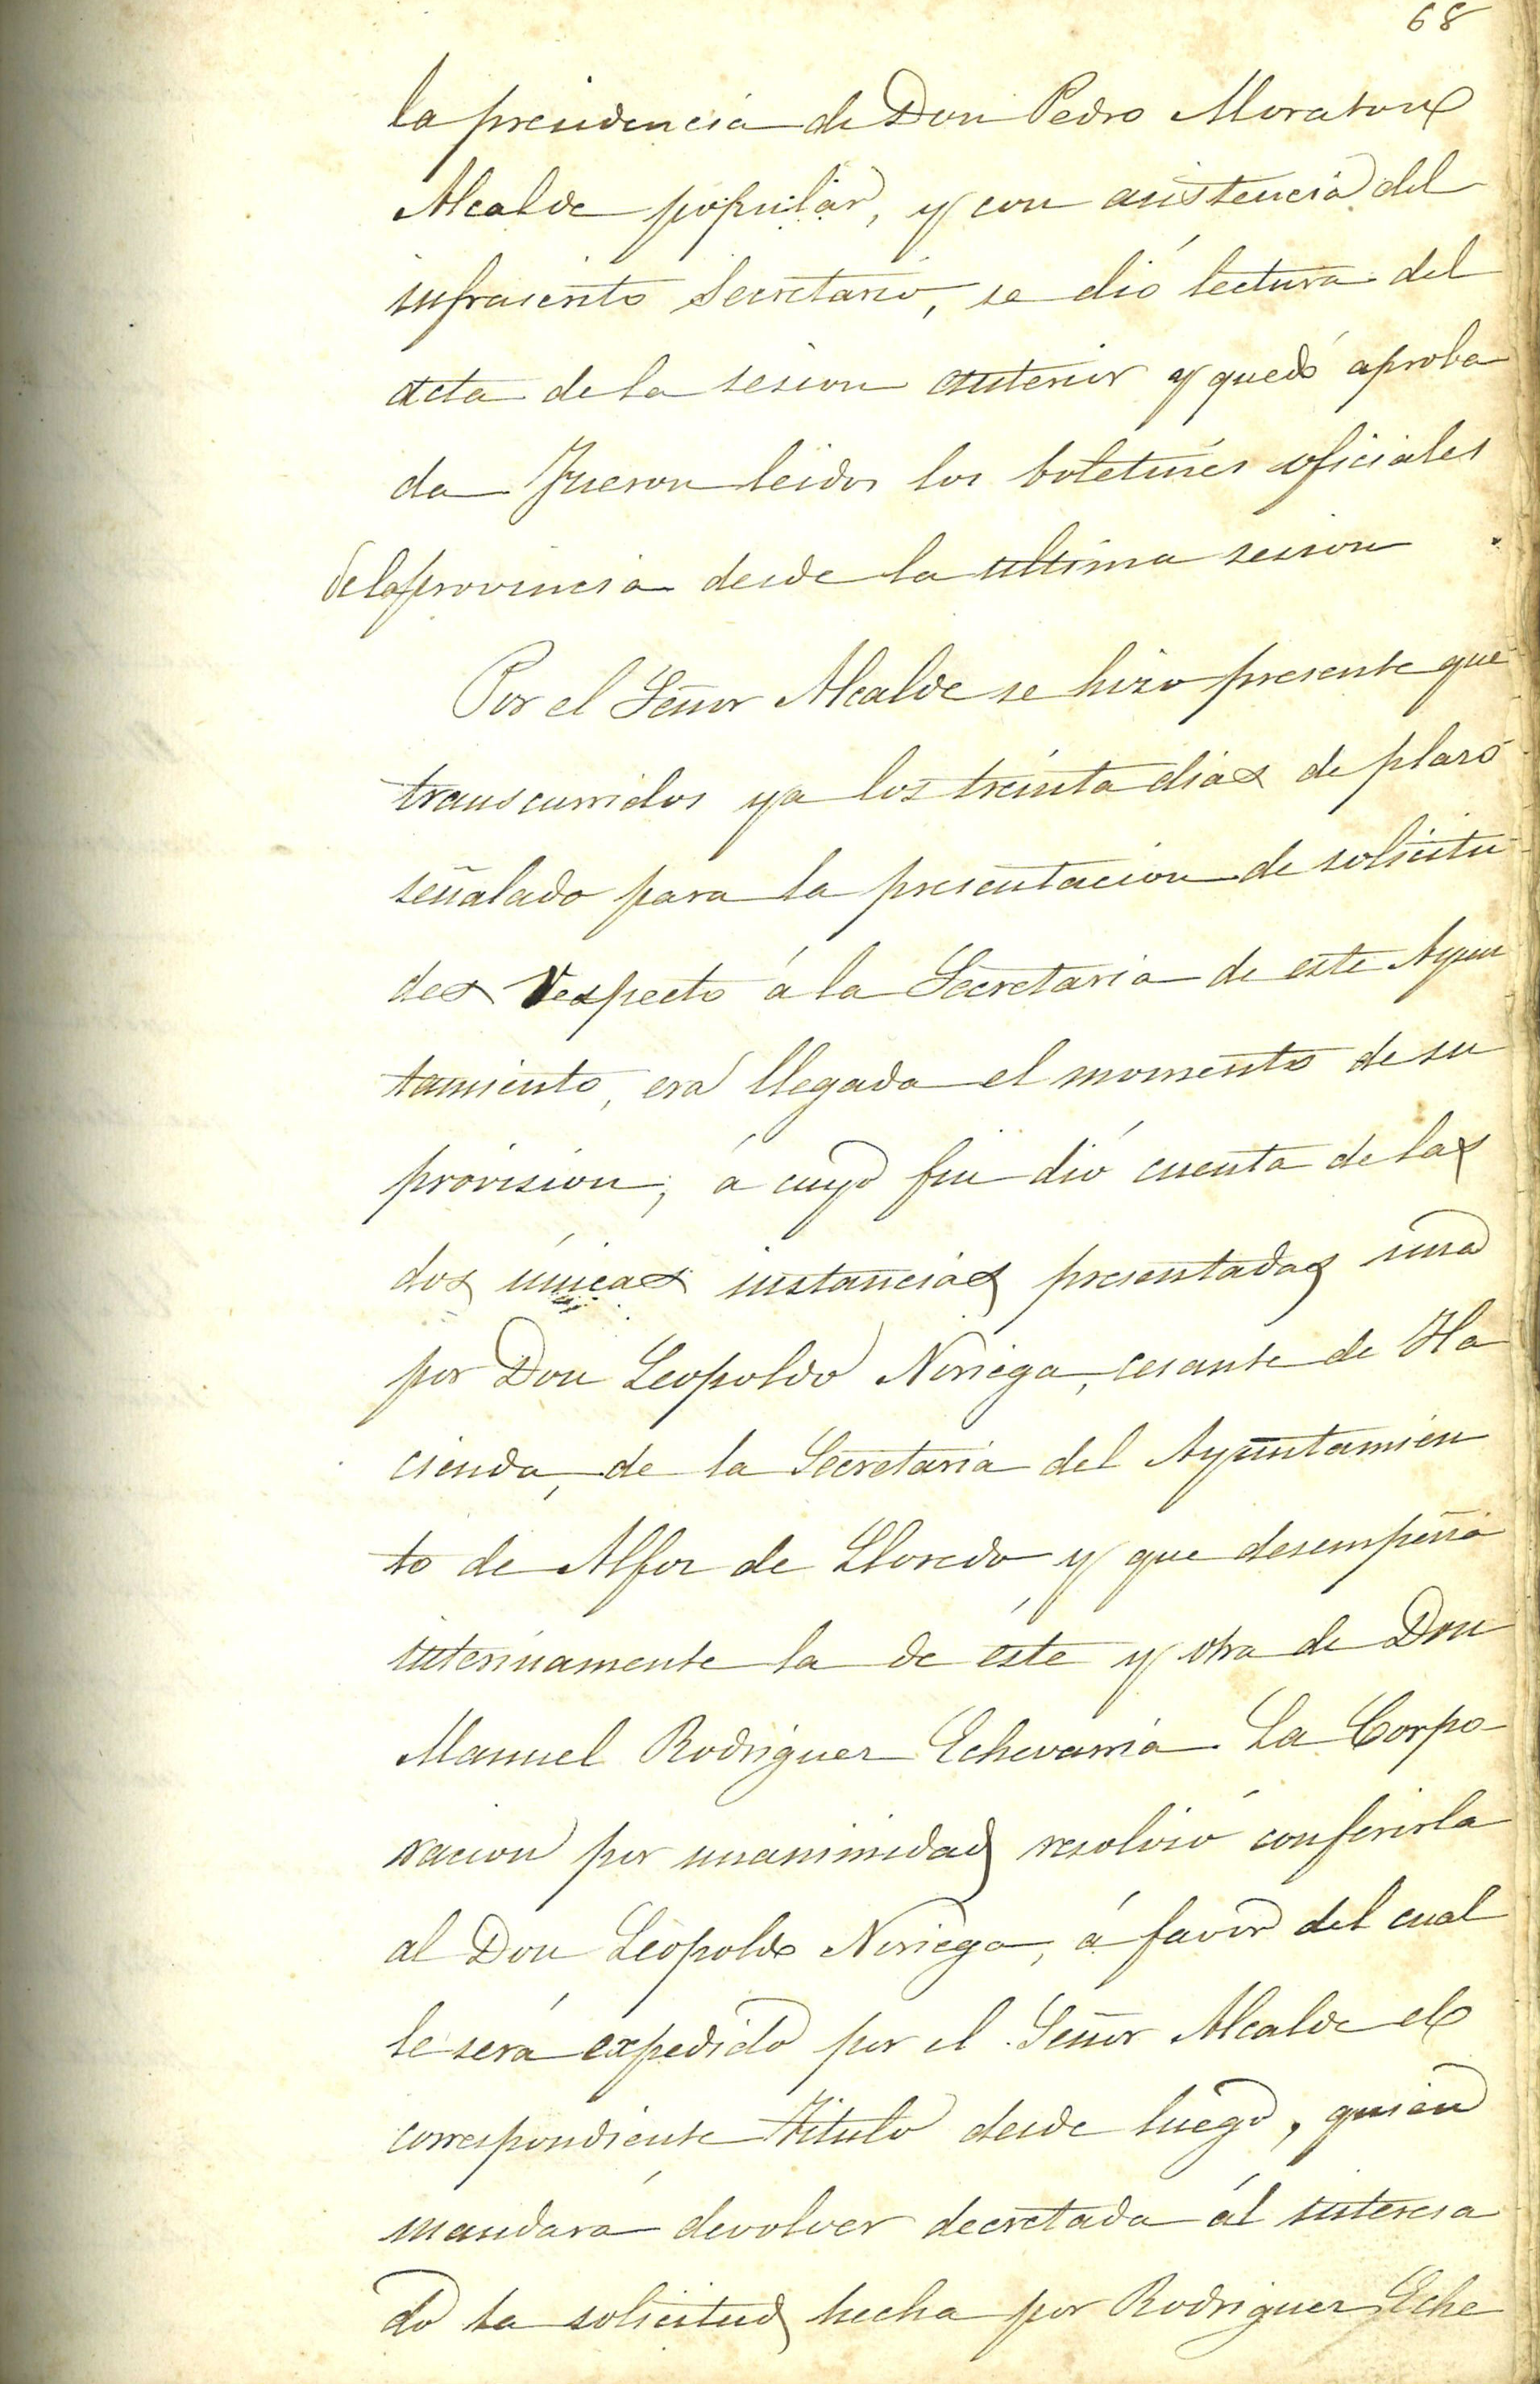 68
la presidencia de Don Pedro Moraton
Alcalde popular, y con asistencia del
infrascrito Secretario, se dió lectura del
acta de la sesion anterior y quedó aproba
da Fueron leidos los boletines oficiales
de la provincia desde la ultima sesion
Por el Señor Alcalde se hizo presente que
transcurridos ya los treinta dias de plazo
señalado para la presentacion de solicitu
des respecto á la Secretaria de este Ayun
tamiento, era llegado el momento de su
provision; á cuyo fin dió cuenta de las
dos únicas instancias presentadas una
por Don Leopoldo Noriega, cesante de Ha
cienda, de la Secretaria del Ayuntamien
to de Alfoz de Lloredo y que desempeña
interinamente la de éste y otra de Don
Manuel Rodriguez Echevarria. La Corpo
racion por unanimidad resolvió conferirla
al Don Leopoldo Noriega, á favor del cual
le será expedido por el Señor Alcalde el
correspondiente titulo desde luego, quien
mandará devolver decretada ál interesa
do la solicitud hecha por Rodriguez Eche